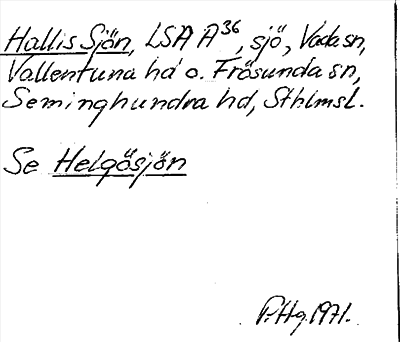 Hallis Sjön, LSA A36, sjö, Vada sn,
Vallentuna hd o. Frösunda sn,
Seminghundra hd, Sthlmsl.
Se Helgösjön
P.Hg. 1971.